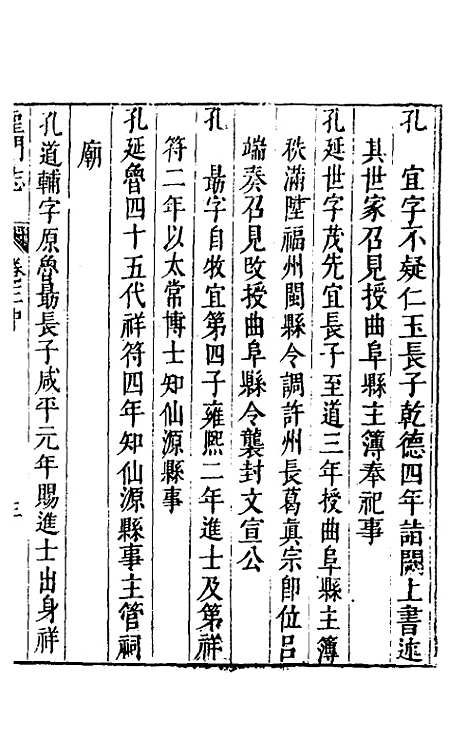 孔　宜字不疑仁玉長子乾德四年詣闕上書述
其世家召見授曲阜縣主簿奉祀事
孔延世字茂先宜長子至道三年授曲阜縣主簿
秩滿陞福州閩縣令調許州長葛真宗卽位呂
端奏召見改授曲阜縣令襲封文宣公
孔　勗字自牧宜第四子雍熙二年進士及第祥
符二年以太常博士知仙源縣事
孔延魯四十五代祥符四年知仙源縣事主管祠
廟
孔道輔字原魯勗長子咸平元年賜進士出身祥
門志　卷三中　三